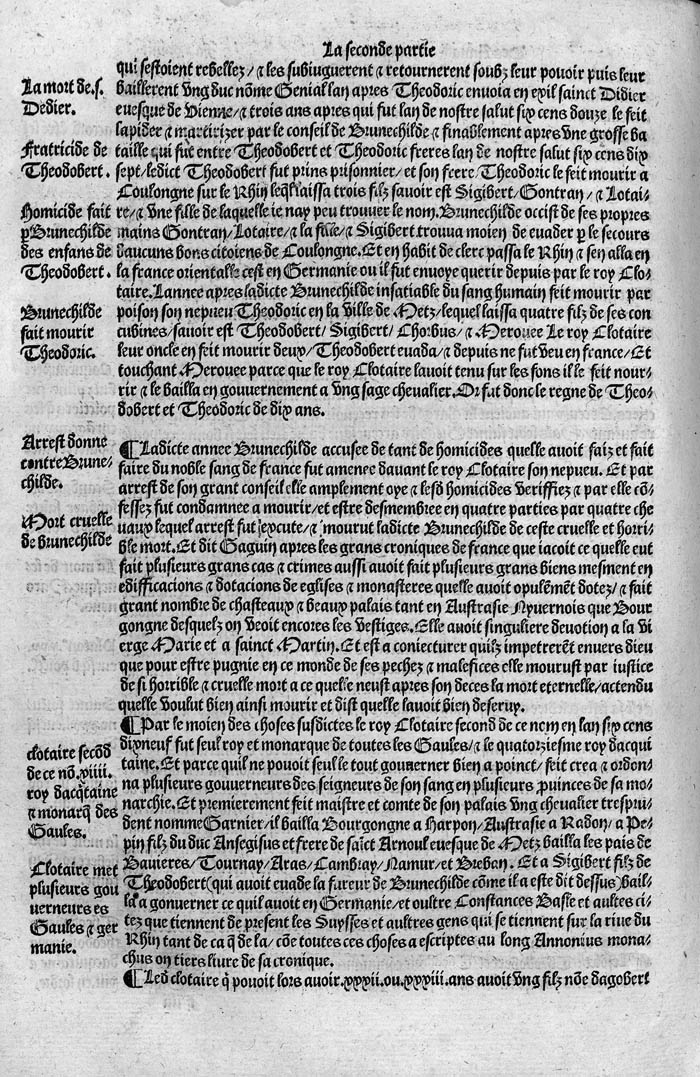 La seconde partie
qui sestoient rebellez/ ⁊ les subiuguerent ⁊ retournerent soubz leur pouoir puis leur
La mort de .s.
Dedier.
baillerent vng duc nōme Genial lan apres Theodoric enuoia en exil sainct Didier
euesque de Vienne/ ⁊ trois ans apres qui fut lan de nostre salut six cens douze le feit
lapider ⁊ martirizer par le conseil de Brunechilde ⁊ finablement apres vne grosse ba
Fratricide de
Theodobert.
taille qui fut entre Theodobert et Theodoric freres lan de nostre salut six cens dix
sept/ ledict Theodobert fut prins prisonnier/ et son frere/ Theodoric le feit mourir a
Coulongne sur le Rhin leq̄l laissa trois filz sauoir est Sigibert/ Gontran/ ⁊ Lotai-
Homicide fait
ꝑ Brunechilde
des enfans de
Theodobert.
re/ ⁊ vne fille de laquelle ie nay peu trouuer le nom. Brunechilde occist de ses propres
mains Gontran/ Lotaire/ ⁊ la fille/ ⁊ Sigibert trouua moien de euader ꝑ le secours
daucuns bons citoiens de Coulongne. Et en habit de clerc passa le Rhin ⁊ sen alla en
la france orientalle cest en Germanie ou il fut enuoye querir depuis par le roy Clo-
taire. Lannee apres ladicte Brunechilde insatiable du sang humain feit mourir par
Brunechilde
fait mourir
Theodoric.
poison son nepueu Theodoric en la ville de Metz/ lequel laissa quatre filz de ses con
cubines/ sauoir est Theodobert/ Sigibert/ Chorbus/ ⁊ Merouee Le roy Clotaire
leur oncle en feit mourir deux/ Theodobert euada/ ⁊ depuis ne fut veu en france/ Et
touchant Merouee parce que le roy Clotaire lauoit tenu sur les fons il le feit nour-
rir ⁊ le bailla en gouuernement a vng sage cheualier. Or fut donc le regne de Theo-
dobert et Theodoric de dix ans.
Arrest donne
contre Brune-
childe.
¶ Ladicte annee Brunechilde accusee de tant de homicides quelle auoit faiz et fait
faire du noble sang de france fut amenee dauant le roy Clotaire son nepueu. Et par
arrest de son grant conseil elle amplement oye ⁊ lesd homicides veriffiez ⁊ par elle cō-
Mort cruelle
de brunechilde
fessez fut condamnee a mourir/ et estre desmembree en quatre parties par quatre che
uaux lequel arrest fut execute/ ⁊ mourut ladicte Brunechilde de ceste cruelle et horri-
ble mort. Et dit Gaguin apres les grans croniques de france que iacoit ce quelle eut
fait plusieurs grans cas ⁊ crimes aussi auoit fait plusieurs grans biens mesment en
edifficacions ⁊ dotacions de eglises ⁊ monasteres quelle auoit opulēmēt dotez/ ⁊ fait
grant nombre de chasteaux ⁊ beaux palais tant en Austrasie Nyuernois que Bour
gongne desquelz on veoit encores les vestiges. Elle auoit singuliere deuotion a la vi
erge Marie et a sainct Martin. Et est a coniecturer quilz impetrerēt enuers dieu
que pour estre pugnie en ce monde de ses pechez ⁊ malefices elle mourust par iustice
de si horrible ⁊ cruelle mort a ce quelle neust apres son deces la mort eternelle/ actendu
quelle voulut bien ainsi mourir et dist quelle lauoit bien deseruy.
¶ Par le moien des choses susdictes le roy Clotaire second de ce nom en lan six cens
clotaire secōd
de ce nō. xiiii.
roy dacq̄taine
⁊ monarq̄ des
Gaules.
dixneuf fut seul roy et monarque de toutes les Gaules/ ⁊ le quatorziesme roy dacqui
taine. Et parce quil ne pouoit seul le tout gouuerner bien a poinct/ feit crea ⁊ orden-
na plusieurs gouuerneurs des seigneurs de son sang en plusieurs ꝓuinces de sa mo-
narchie. Et premierement feit maistre et comte de son palais vng cheualier trespru-
dent nomme Garnier/ il bailla Bourgongne a Harpon/ Austrasie a Radon/ a Pe-
pin filz du duc Ansegisus et frere de saīct Arnoul euesque de Metz bailla les pais de
Clotaire met
plusieurs gou
uerneurs es
Gaules ⁊ ger
manie.
Bauieres/ Tournay/ Aras/ Cambray/ Namur/ et Breban. Et a Sigibert filz de
Theodobert (qui auoit euade la fureur de Brunechilde cōme il a este dit dessus) bail-
la a gonuerner ce quil auoit en Germanie/ et oultre Constances Basle et aultes ci-
tez que tiennent de present les Suysses et aultres gens qui se tiennent sur la riue du
Rhin tant de ca q̄ de la/ cōe toutes ces choses a escriptes au long Annonius mona-
chus on tiers liure de sa cronique.
¶ Led clotaire q̄ pouoit lors auoir. xxxii. ou. xxxiii. ans auoit vng filz nōe dagobert